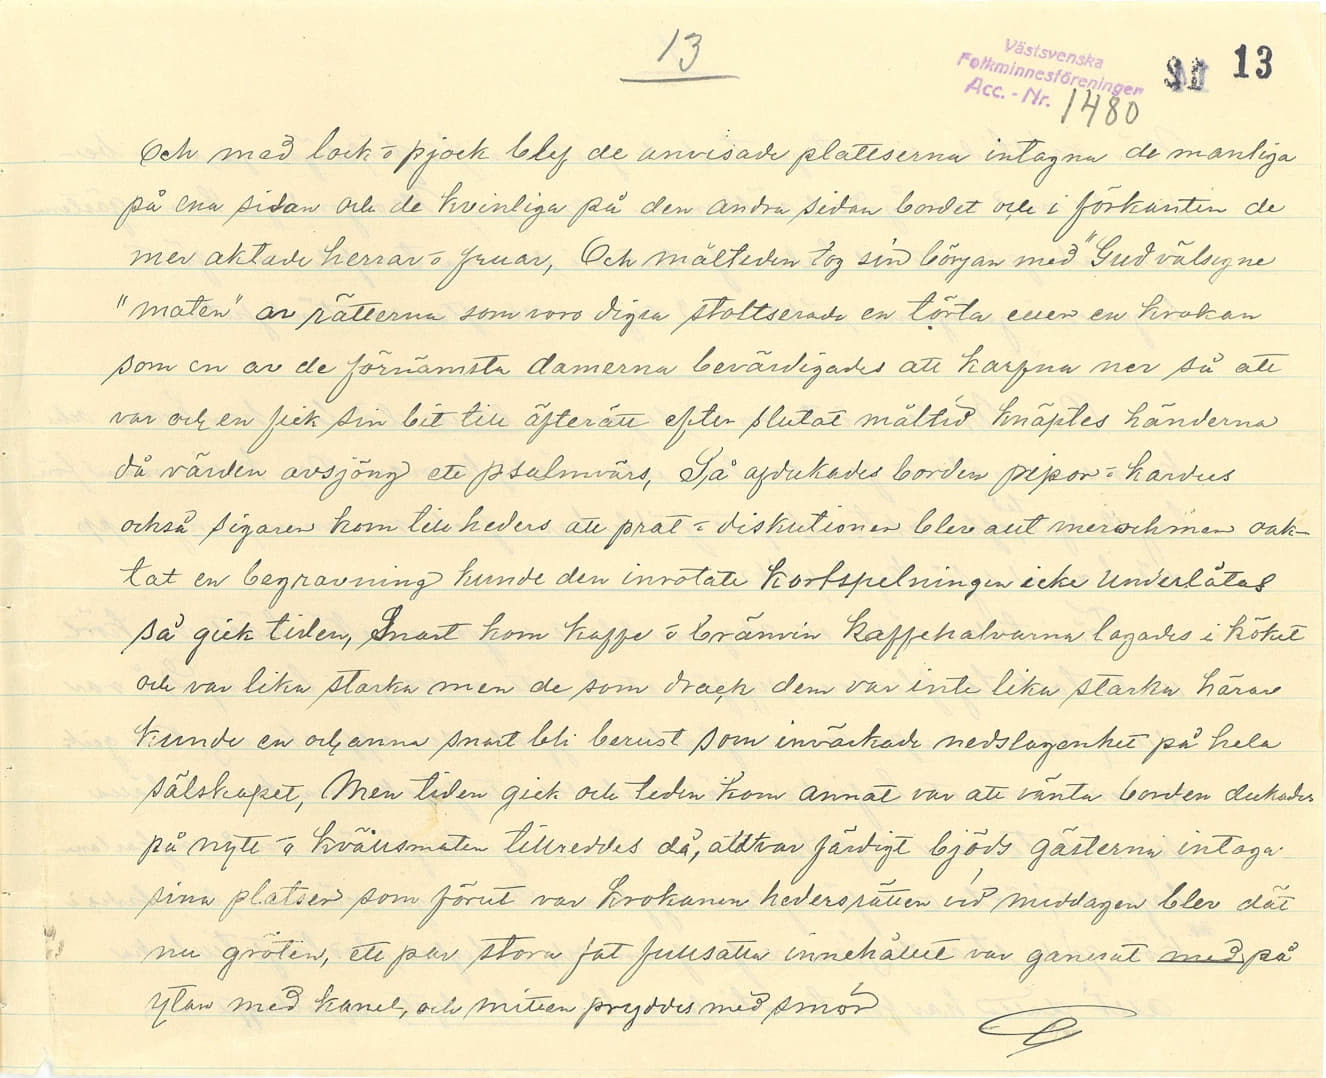 13
Västsvenska
Folkminnesföreningen
Acc. - Nr. 1480
13
Och med lock o pjock blef de anvisade plattserna intagna de manliga
på ena sidan och de kvinliga på den andra sidan bordet och i förkanten de
mer aktade herrar o fruar, Och målteden tog sin början med "Gud välsigne
"maten" av rätterna som voro digra stoltserade en törta eller en krokan
som en av de förnämsta damerna bevärdigades att karfva ner så att
var och en fick sin bit till äfterätt efter slutat måltid knäptes händerna
då värden avsjöng ett psalmvärs, Så afdukades borden pipor o kardus
också sigarer kom till heders att prat o diskutioner blev allt mer och mer oak-
tat en begravning kunde den inrotate kortspelningen icke underlåtas
så gick tiden, Snart kom kaffe o bränvin kaffehalvarna lagades i köket
och var lika starka men de som drack dem var inte lika starka härav
kunde en och anna snart bli berust som invärkade nedslagenhet på hela
sälskapet, Men tiden gick och teden kom annat var att vänta borden dukades
på nytt o kvällsmaten tillreddes då, allt var färdigt bjöds gästerna intaga
sina platser som förut var krokanen hedersrätten vid middagen blev dät
nu gröten, ett par stora fat fullsatta innehållet var garnerat med på
ytan med kanel, och mitten pryddes med smör